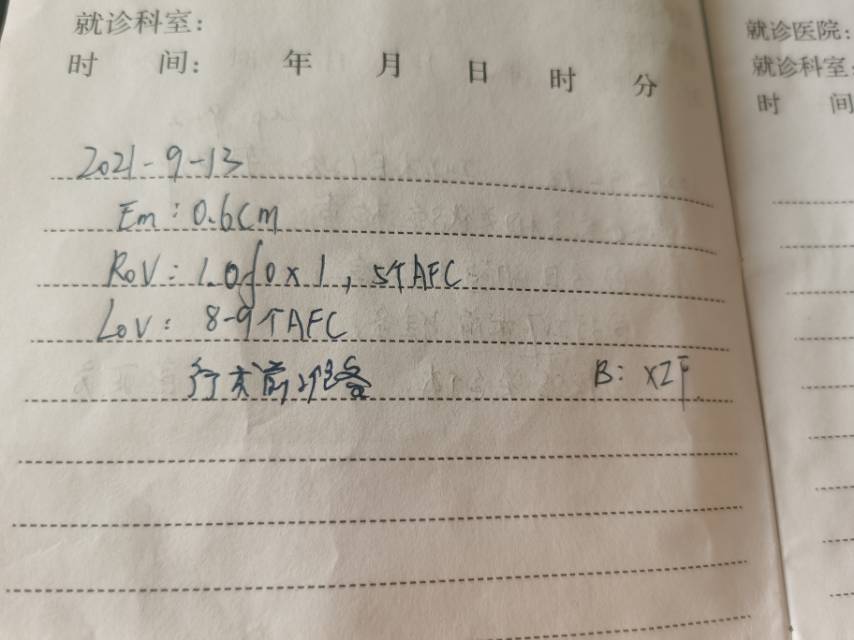 就诊科室:
时 间: 年 月 日 时 分
2021-9-13
Em: 0.6cm
RoV: 1.0 0 x 1, 5个AFC
LoV: 8-9个AFC
行 前准备 B: XZF
就诊医院:
就诊科室:
时 间